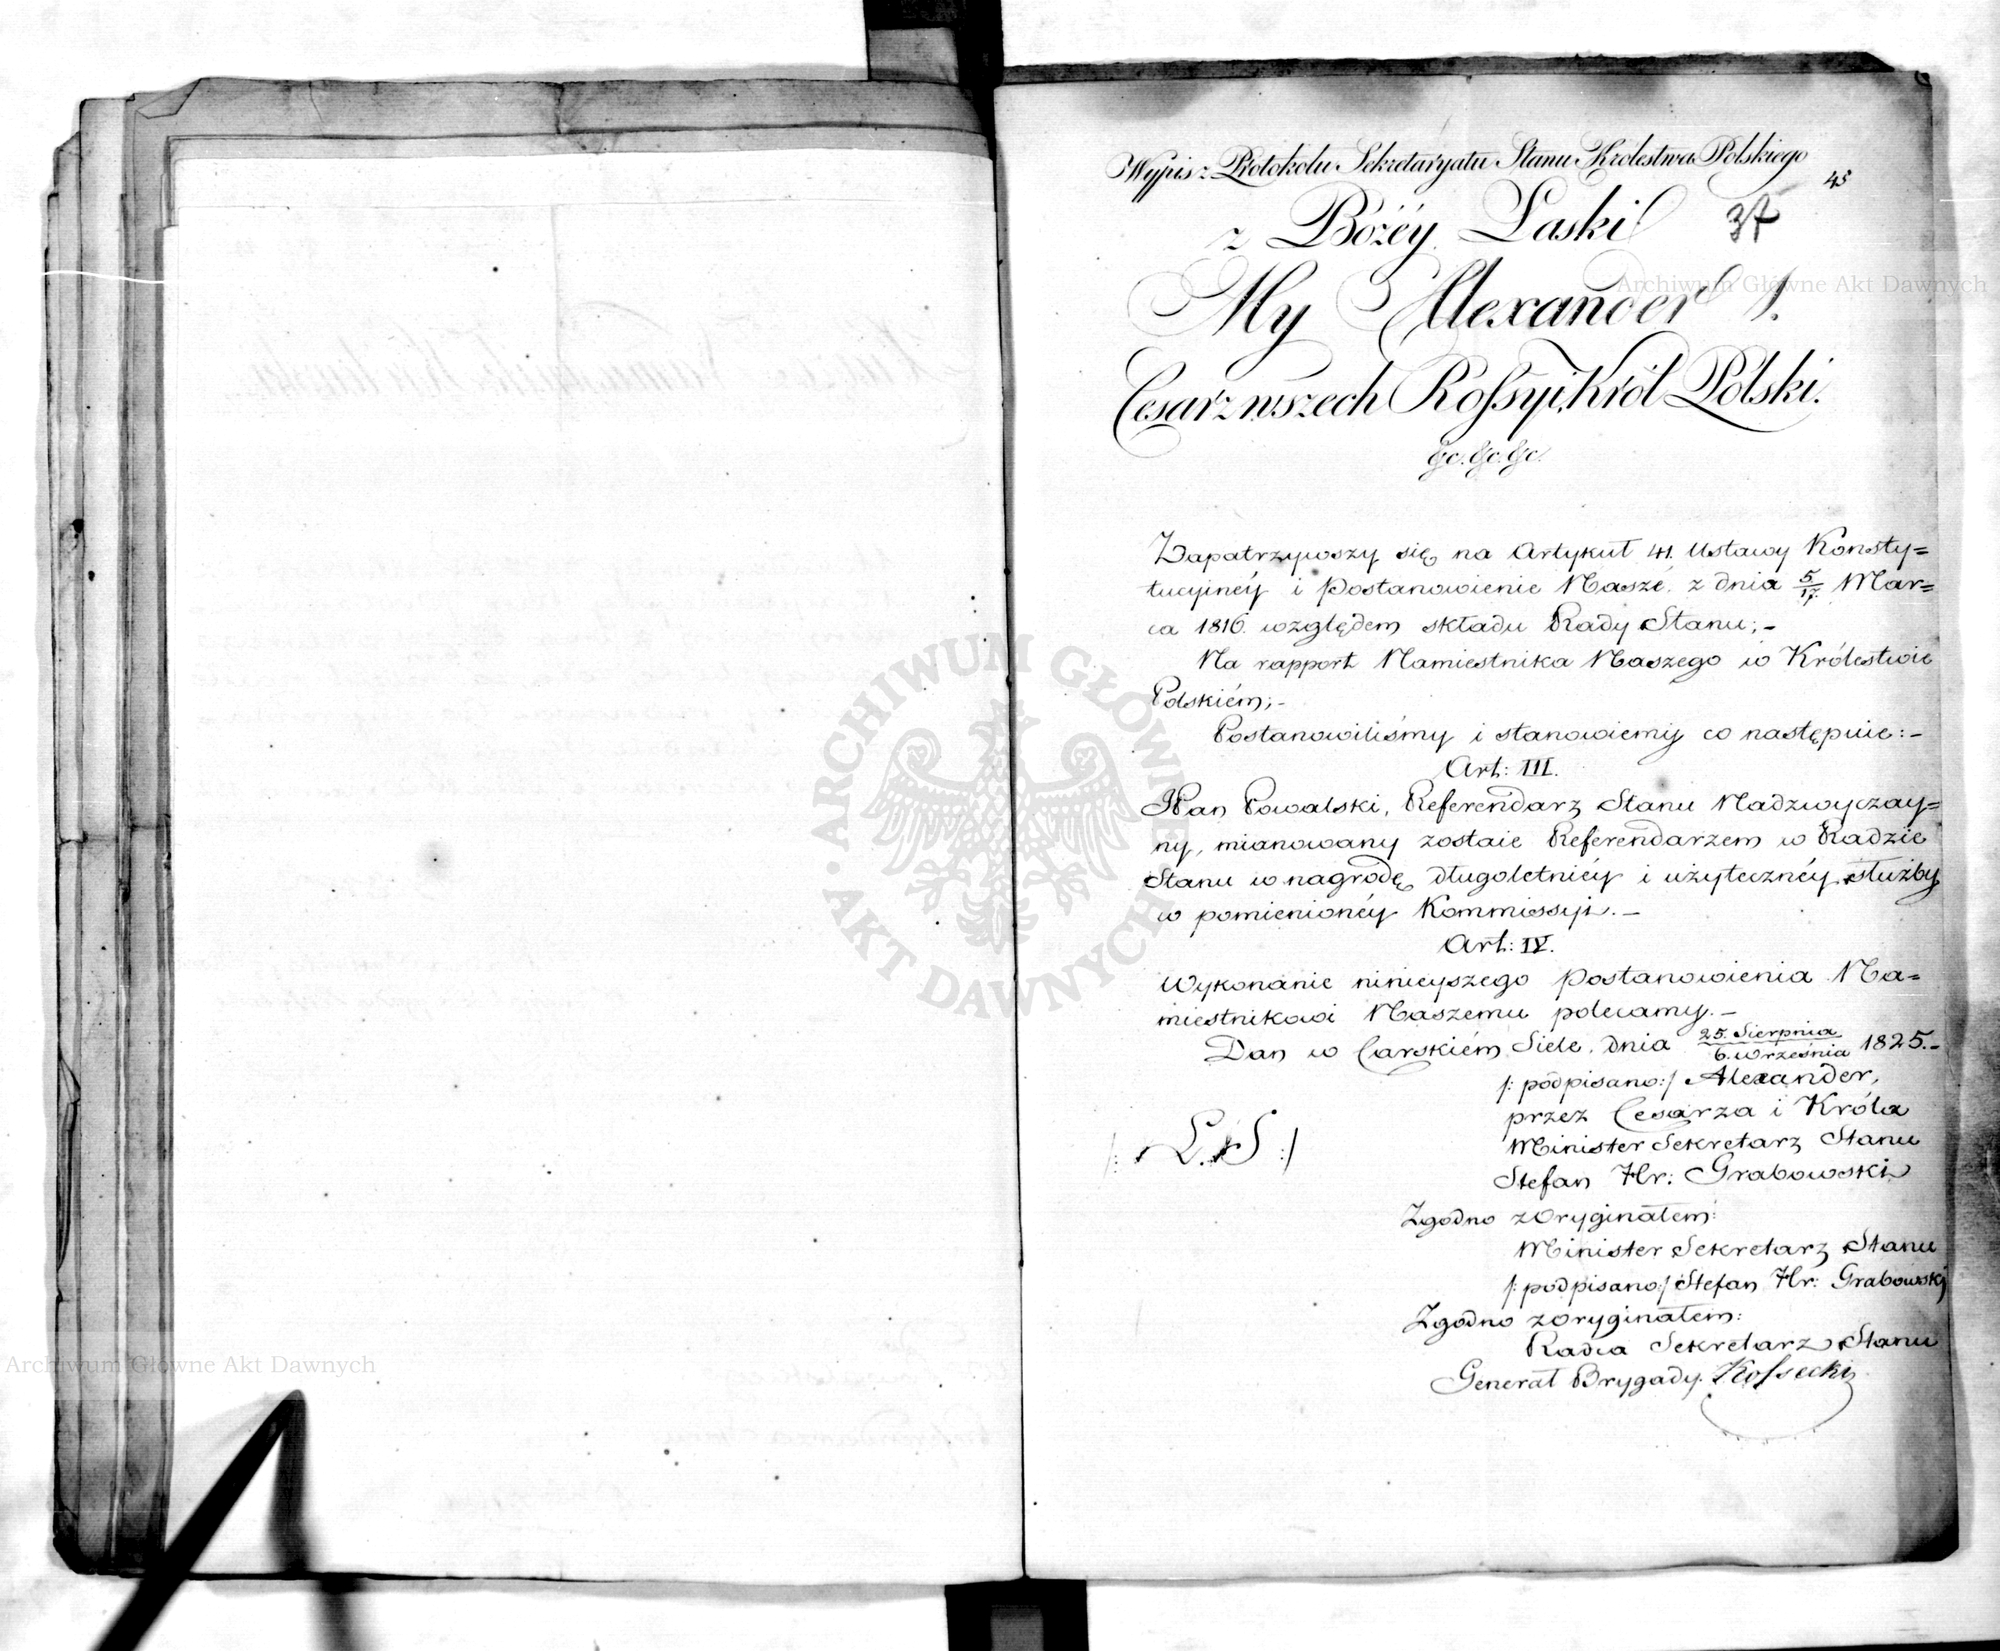 Wypis z Protokolu Sekretaryatu Stanu Krolestwa Polskiego
45
z Bożéy Laski
37
My Alexander I.
Cesarz wszech Rossyi, Król Polski.
&c. &c. &c.
Zapatrzywszy się na Artykuł 41. Ustawy Konsty=
tucyinéy i Postanowienie Nasze z dnia 5/17. Mar=
ca 1816. względem składu Rady Stanu;-
Na rapport Namiestnika Naszego w Królestwie
Polskiém;-
Postanowiliśmy i stanowiemy co następuie:-
Art: III.
Pan Powalski, Referendarz Stanu Nadzwyczay=
ny, mianowany zostaie Referendarzem w Radzie
Stanu w nagrodę długoletniéy i użytecznéy służby
w pomienionéy Kommissyi.-
Art: IV.
Wykonanie ninieyszego Postanowienia Na=
miestnikowi Naszemu polecamy.-
Dan w Carskiém Siele, dnia 25. Sierpnia/6. Września 1825.-
/: podpisano:/ Alexander,
przez Cesarza i Króla
Minister Sekretarz Stanu
/: L. S :/
Stefan Hr: Grabowski
Zgodno z Oryginałem:
Minister Sekretarz Stanu
/: podpisano:/ Stefan Hr: Grabowski
Zgodno z Oryginałem:
Radca Sekretarz Stanu
Generał Brygady. Kossecki
Archiwum Główne Akt Dawnych
ARCHIWUM GŁÓWNE AKT DAWNYCH
Archiwum Główne Akt Dawnych